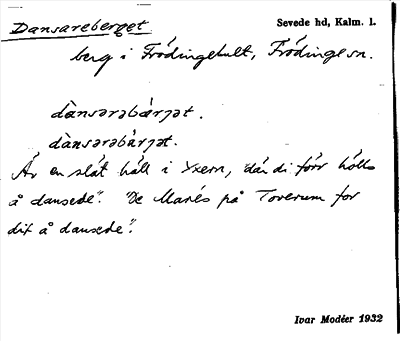 Dansareberget
Sevede hd, Kalm. l.
berg i Frödingehult, Frödinge sn.
dànsərəbärjət.
dànsərəbàrjət.
Är en slät häll i Yxern, "där di förr hölls
å dansede". "De Mariés på Toverum for
dit å dansede".
Ivar Modéer 1932